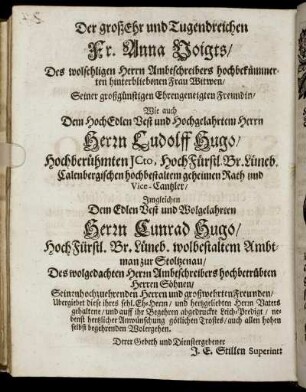 Der großEhr und Tugendreichen
Fr. Anna Voigts/
Des wolsehligen Herrn Ambtschreibers hochbekümmer-
ten hinterbliebenen Frau Witwen/
Seiner großgünstigen Ehrengeneigten Freundin/
Wie auch
Dem HochEdlen Vest und Hochgelahrtem Herrn
Herrn Ludolff Hugo/
Hochberühmten JCto, HochFürstl. Br. Lüneb.
Calenbergischen hochbestaltem geheimen Rath und
Vice-Cantzler/
Imgleichen
Dem Edlen Vest und Wolgelahrten
Herrn Cunrad Hugo/
HochFürstl. Br. Lüneb. wolbestaltem Ambt-
man zur Stoltzenau/
Des wolgedachten Herrn Ambtschreibers hochbetrübten
Herren Söhnen/
Seinen hochzuehrenden Herren und großwehrten Freunden/
Ubergiebet diese ihres sehl. Eh-Herrn/ und hertzgeliebten Herrn Vaters
gehaltene/ und auff ihr Begehren abgedruckte Leich-Predigt/ ne-
benst hertzlicher Anwünschung göttlichen Trostes/ auch allen hohen
selbst begehrenden Wolergehen.
Derer Gebeth und Dienstergebener
J. E. Stillen Superint: